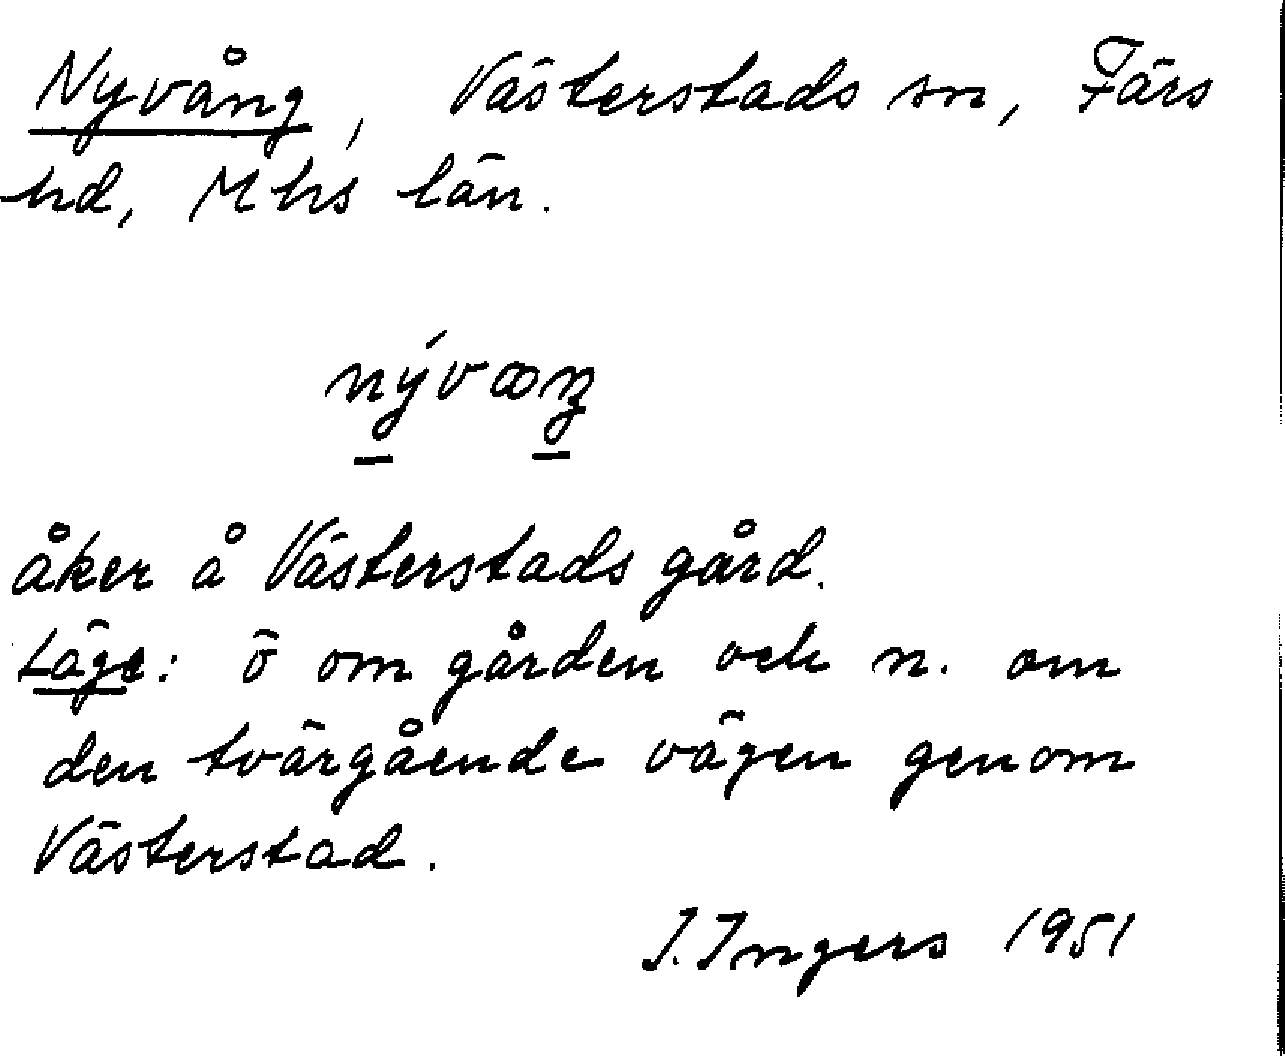 Nyvång, Västerstads sn, Färs
hd, Mhs län.
åker å Västerstads gård.
Läge: ö om gården och n. om
den tvärgående vägen genom
Västerstad.
I. Ingers 1951